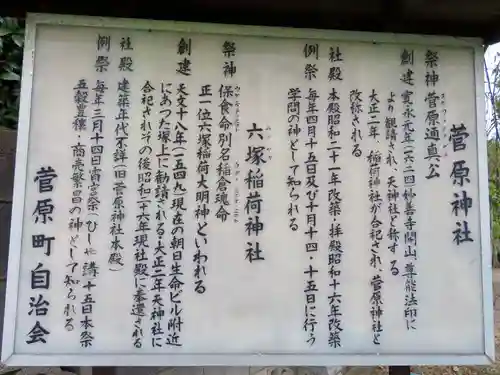 菅原神社
祭神 菅原道真公
創建 寛永元年(一六二四)妙喜寺開山、尊能法印に
より観請され、天神社と称する
大正二年、稲荷神社が合祀され、菅原神社と
改称される
社殿 本殿昭和二十一年改築・拝殿昭和十六年改築
例祭 毎年四月十五日及び十月十四・十五日に行う
学問の神として知られる
六塚稲荷神社
祭神 保食命別名稲倉魂命
正一位六塚稲荷大明神といわれる
創建 天文十八年(一五四九)現在の朝日生命ビル附近
にあつた塚上に勧請される、大正二年天神社に
合祀されその後昭和二十六年現社殿に奉遷される
社殿 建築年代不詳(旧菅原神社本殿)
例祭 毎年三月十四日宵宮祭(ひしゃ講)十五日本祭
五穀豊穣・商売繁昌の神として知られる
菅原町自治会